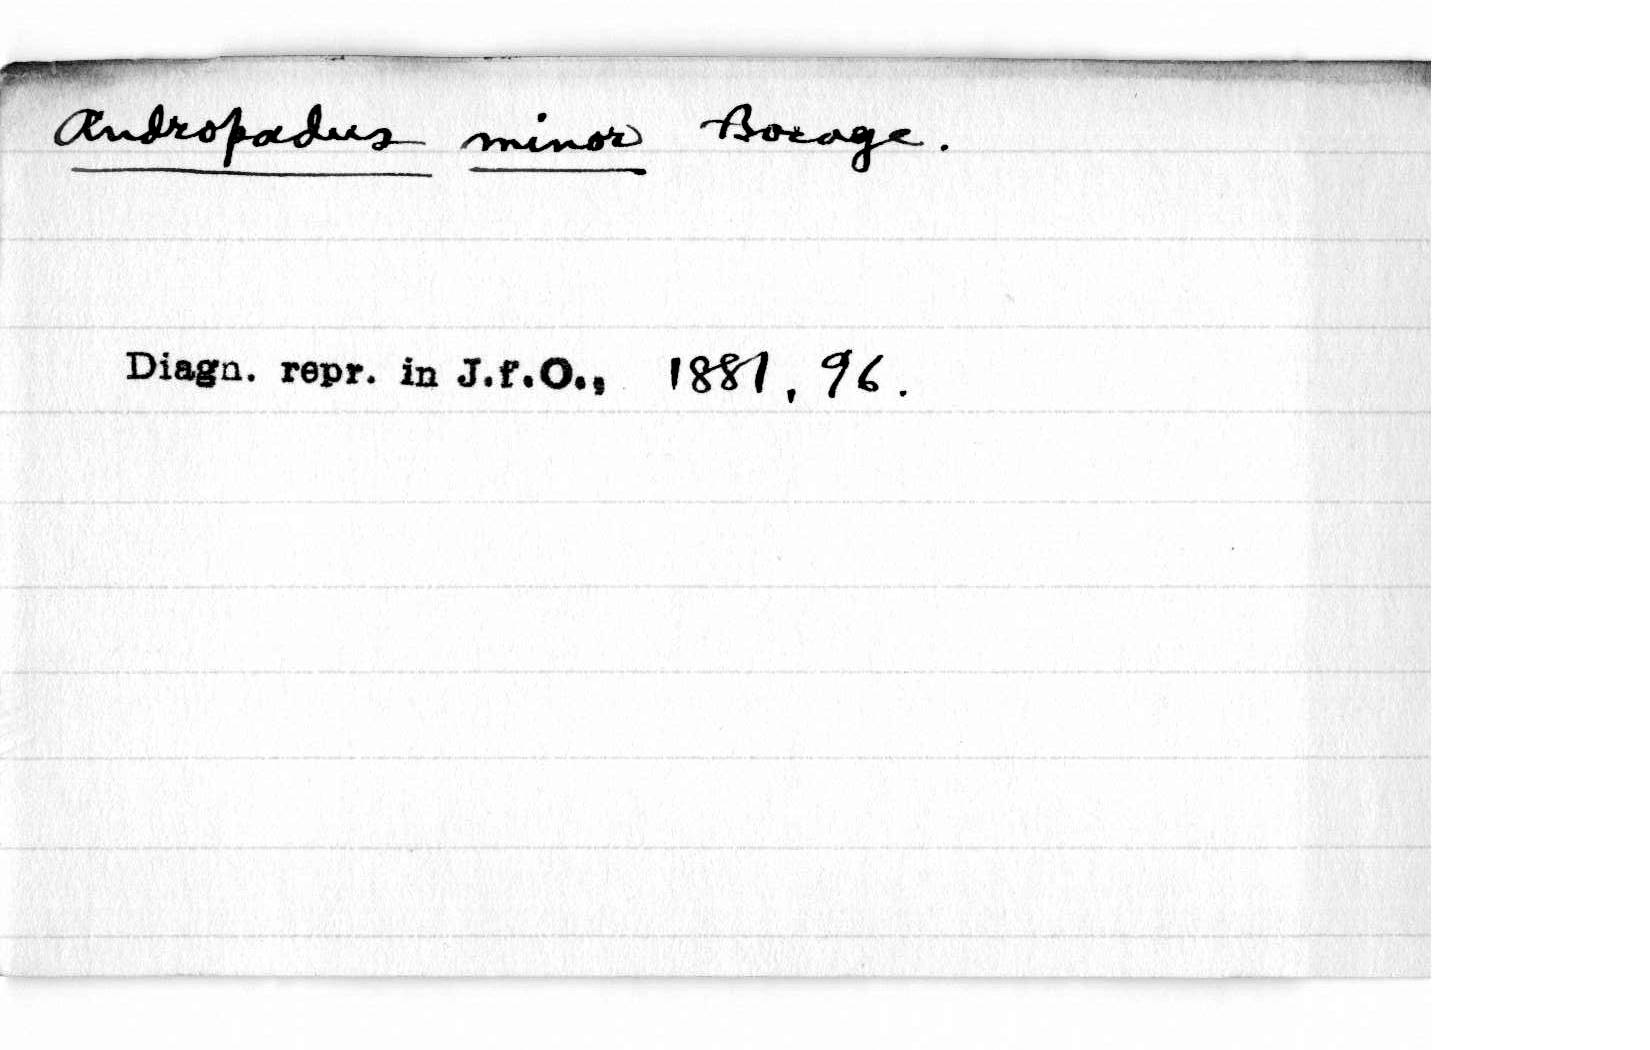 Andropadus minor Bocage.
Diagn. repr. in J.f.O., 1881, 96.